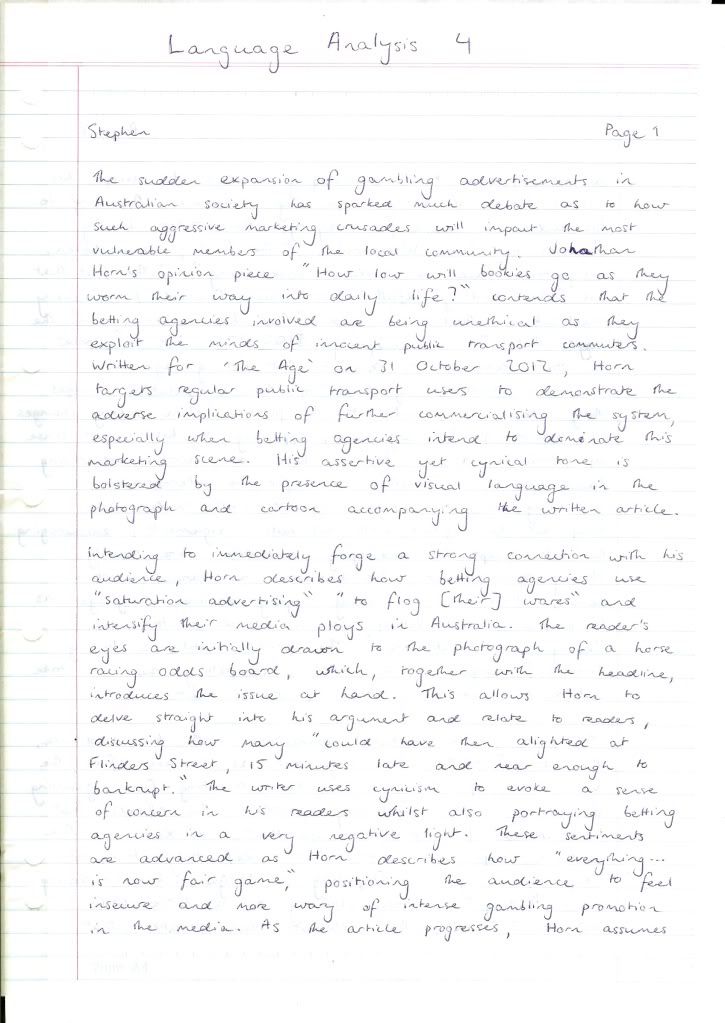 Language Analysis 4
Stephen Page 1
The sudden expansion of gambling advertisements in
Australian society has sparked much debate as to how
such aggressive marketing crusades will impact the most
vulnerable members of the local community. Johathan
Horn's opinion piece "How low will bookies go as they
worm their way into daily life?" contends that the
betting agencies involved are being unethical as they
exploit the minds of innocent public transport commuters.
Written for 'The Age' on 31 October 2012, Horn
targets regular public transport users to demonstrate the
adverse implications of further commercialising the system,
especially when betting agencies intend to dominate this
marketing scene. His assertive yet cynical tone is
bolstered by the presence of visual language in the
photograph and cartoon accompanying the written article.
Intending to immediately forge a strong connection with his
audience, Horn describes how betting agencies use
"saturation advertising" "to flog [their] wares" and
intensify their media ploys in Australia. The reader's
eyes are initially drawn to the photograph of a horse
racing odds board, which, together with the headline,
introduces the issue at hand. This allows Horn to
delve straight into his argument and relate to readers,
discussing how many "could have then alighted at
Flinders Street, 15 minutes late and near enough to
bankrupt." The writer uses cynicism to evoke a sense
of concern in his readers whilst also portraying betting
agencies in a very negative light. These sentiments
are advanced as Horn describes how "everything...
is now fair game," positioning the audience to feel
insecure and more wary of intense gambling promotion
in the media. As the article progresses, Horn assumes